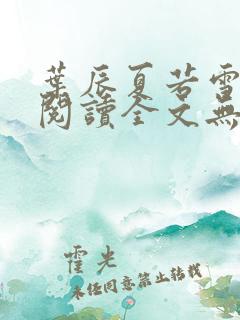 葉辰夏若雪
閱讀全文無
霍光
未经同意禁止转载